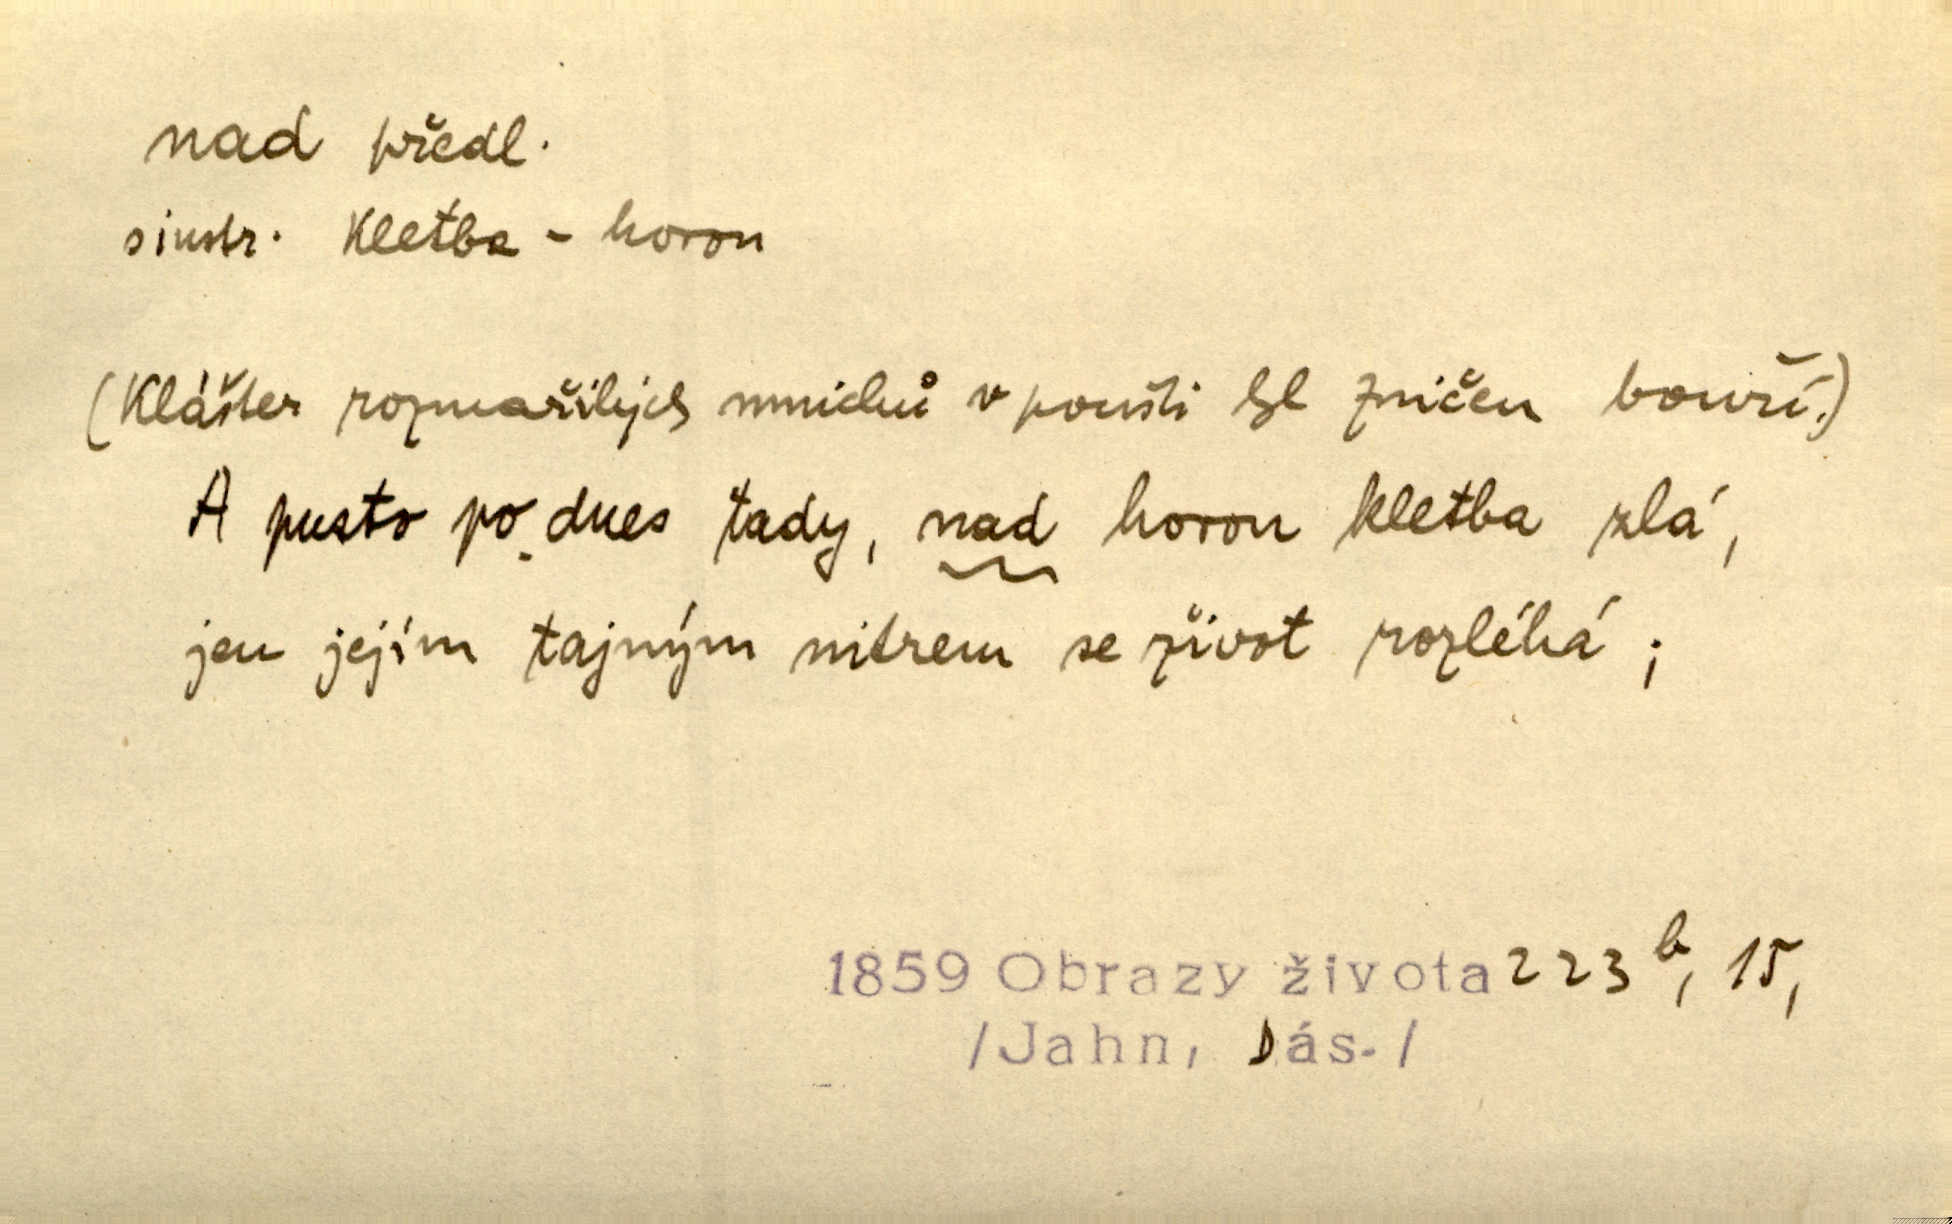 nad předl.
s instr. Kletba - horou
(Klášter rozmařilých mnichů v poušti byl zničen bouří.)
A pusto po dnes tady, nad horou kletba zlá,
jen jejím tajným nitrem se život rozléhá;
1859 Obrazy života 223 b, 15,
/Jahn, Dás./